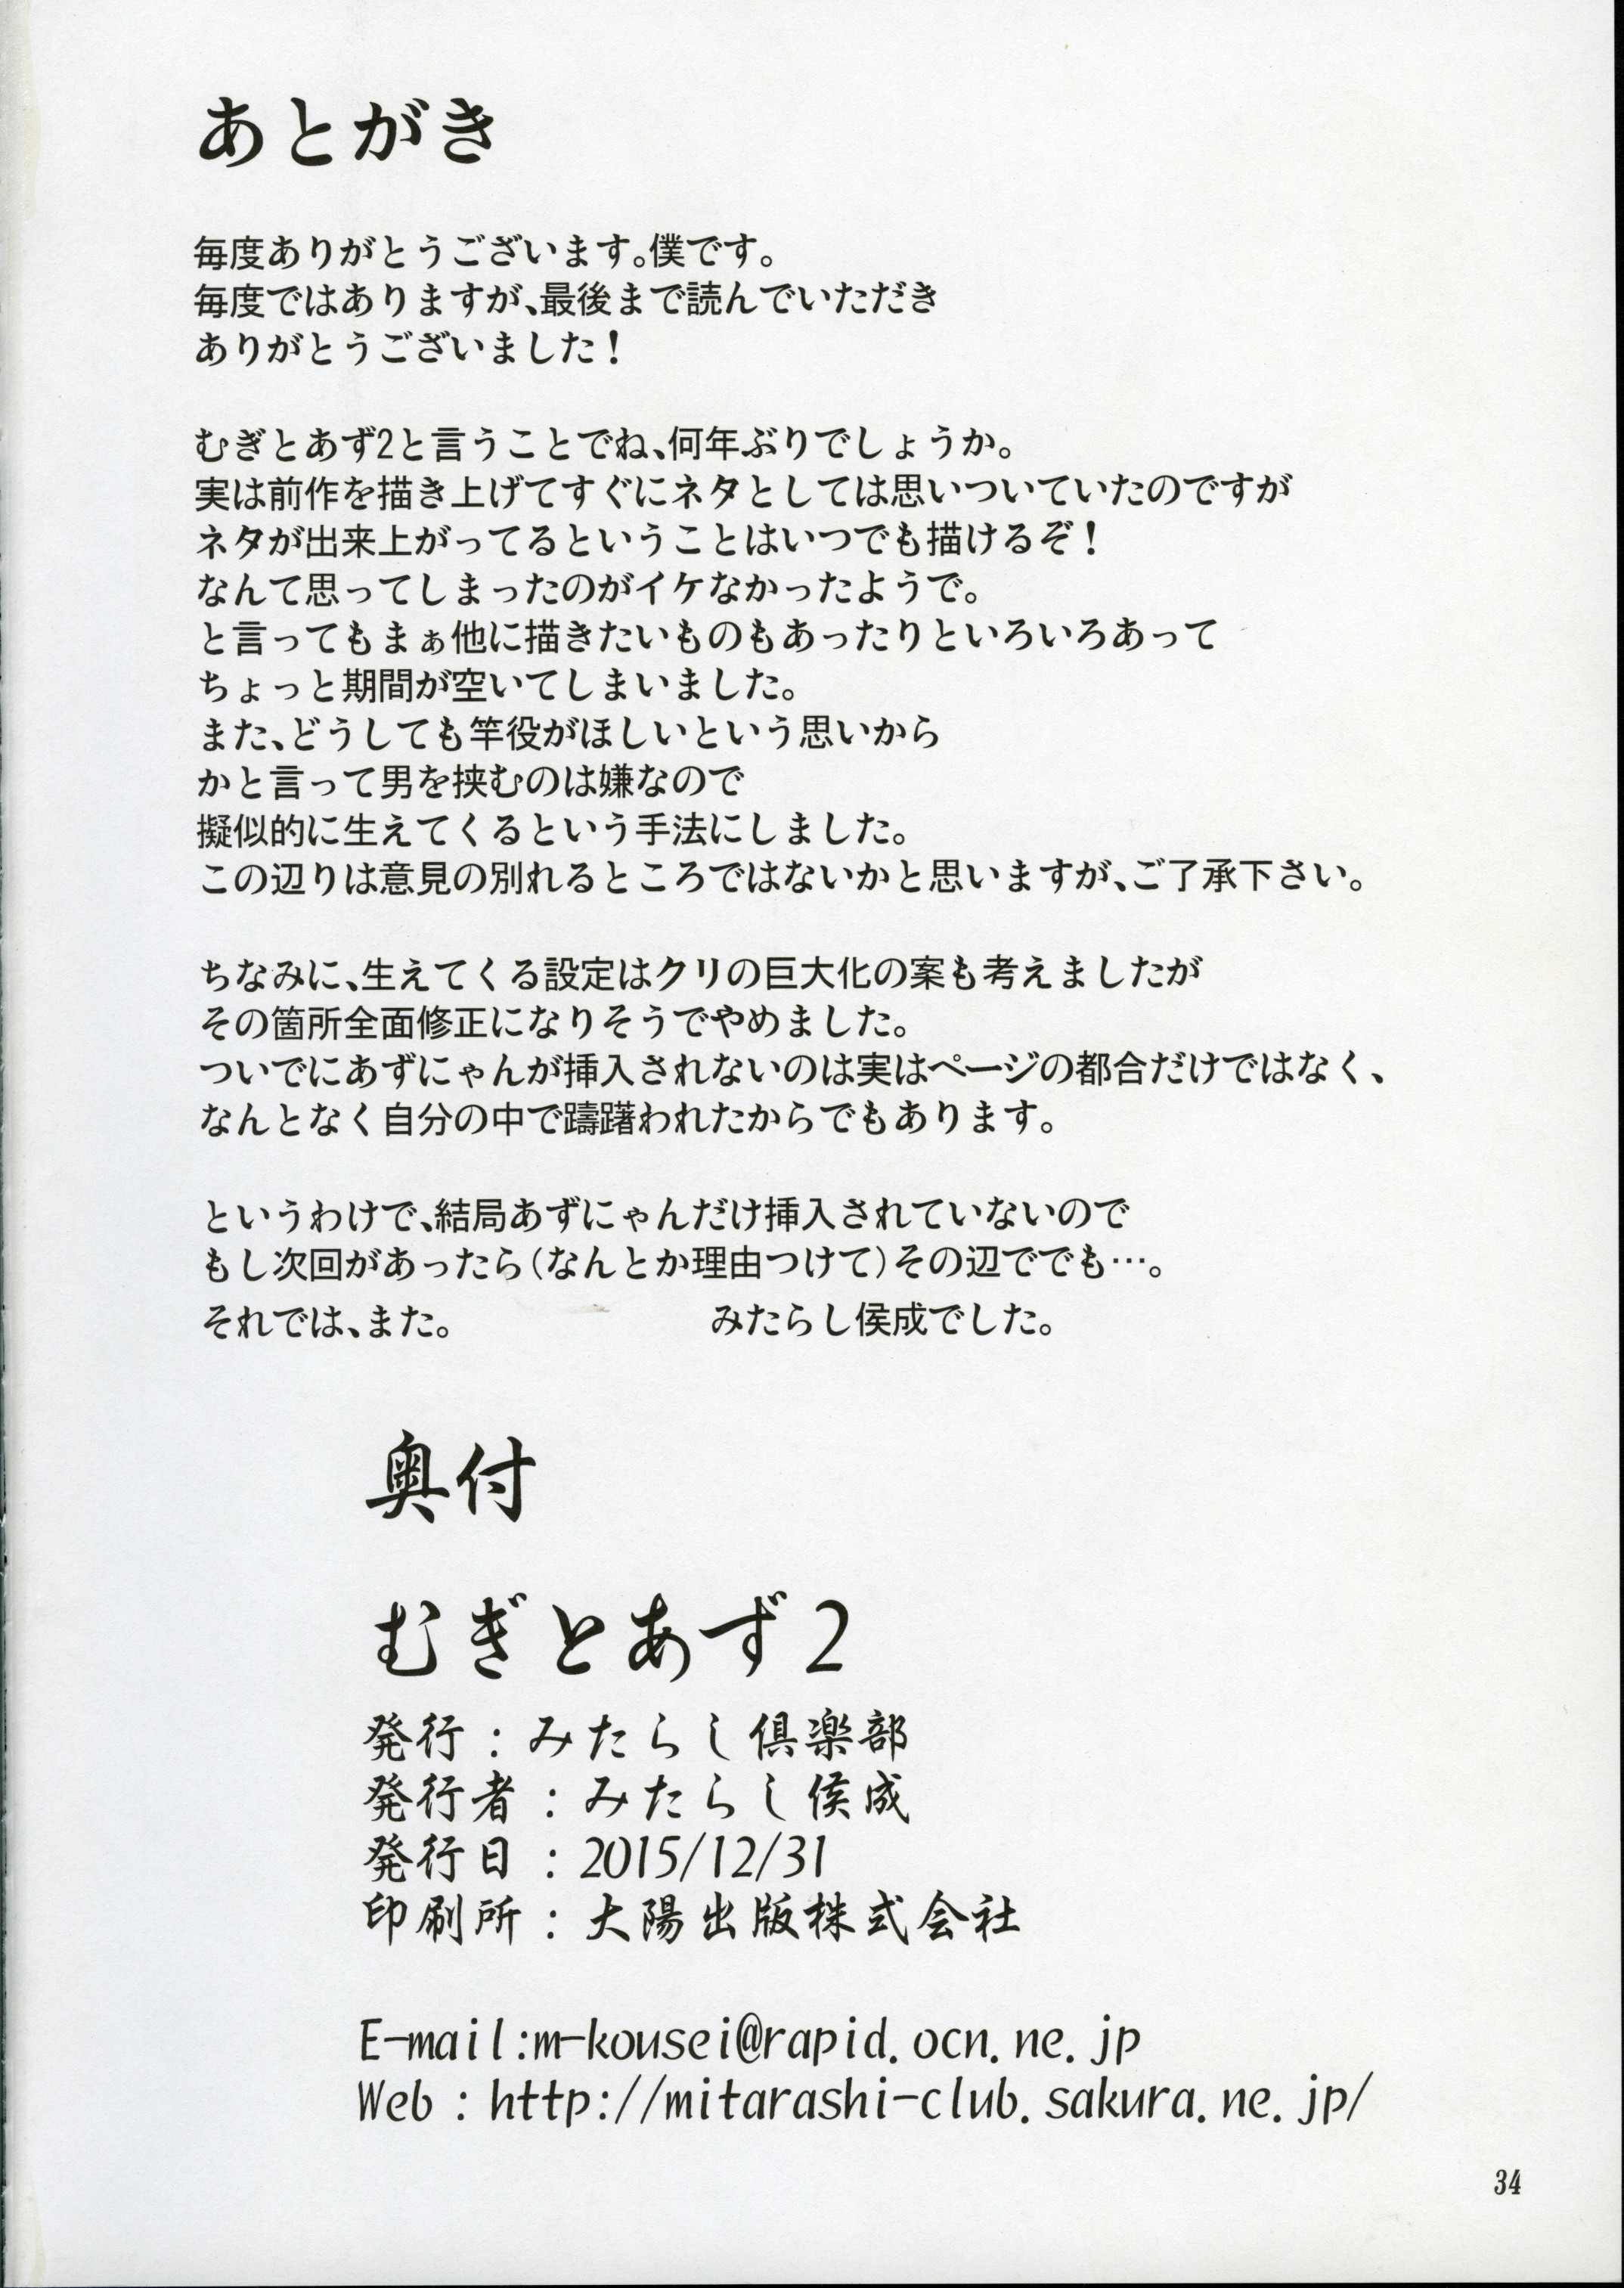 あとがき
毎度ありがとうございます。僕です。
毎度ではありますが、最後まで読んでいただき
ありがとうございました！
むぎとあず2と言うことでね、何年ぶりでしょうか。
実は前作を描き上げてすぐにネタとしては思いついていたのですが
ネタが出来上がってるということはいつでも描けるぞ！
なんて思ってしまったのがイケなかったようで。
と言ってもまぁ他に描きたいものもあったりといろいろあって
ちょっと期間が空いてしまいました。
また、どうしても竿役がほしいという思いから
かと言って男を挟むのは嫌なので
擬似的に生えてくるという手法にしました。
この辺りは意見の別れるところではないかと思いますが、ご了承下さい。
ちなみに、生えてくる設定はクリの巨大化の案も考えましたが
その箇所全面修正になりそうでやめました。
ついでにあずにゃんが挿入されないのは実はページの都合だけではなく、
なんとなく自分の中で躊躇われたからでもあります。
というわけで、結局あずにゃんだけ挿入されていないので
もし次回があったら（なんとか理由つけて）その辺ででも…。
それでは、また。　みたらし侯成でした。
奥付
むぎとあず2
発行：みたらし倶楽部
発行者：みたらし侯成
発行日：2015/12/31
印刷所：大陽出版株式会社
E-mail:m-kousei@rapid.ocn.ne.jp
Web：http://mitarashi-club.sakura.ne.jp/
34